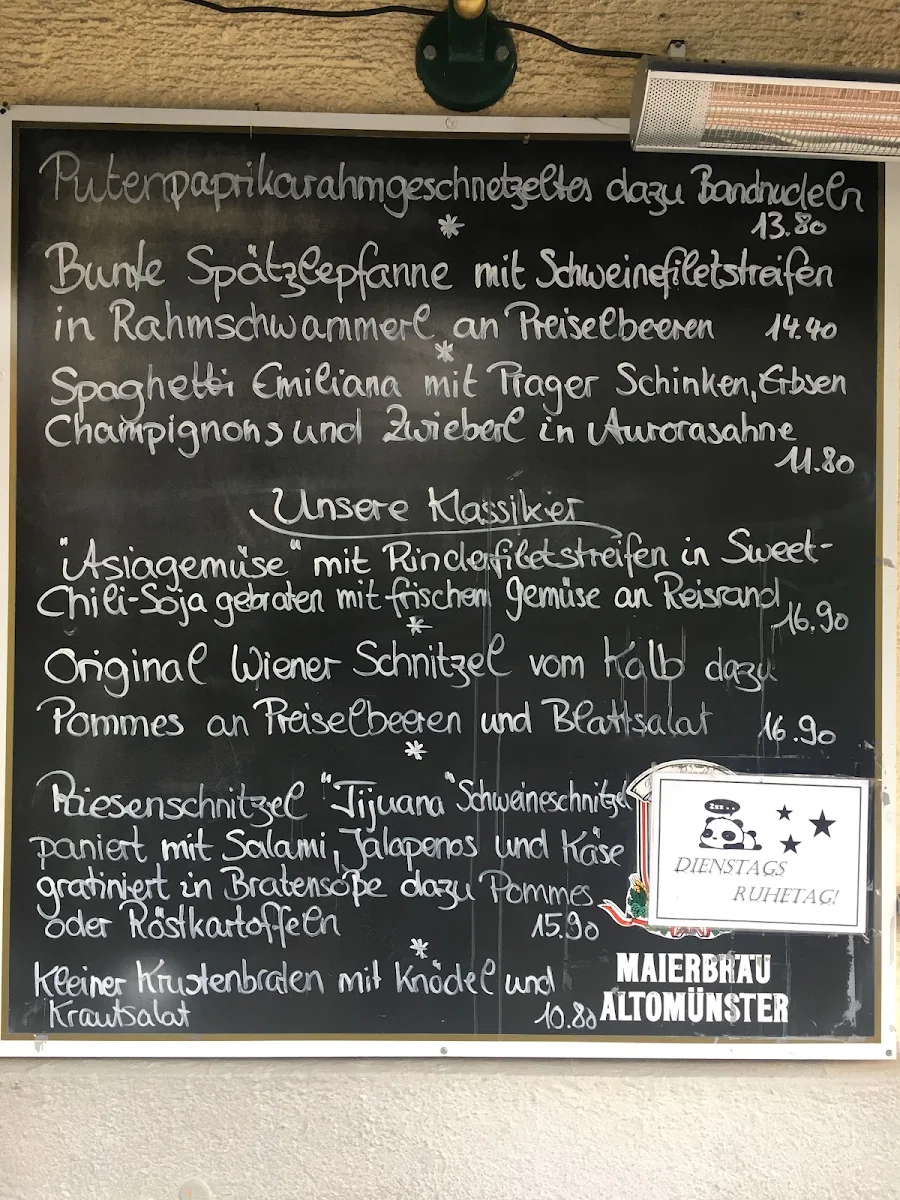 Putenpaprikarahmgeschnetzeltes dazu Bandnudeln
13.80
*
Bunte Spätzlepfanne mit Schweinefiletstreifen
in Rahmschwammerl an Preiselbeeren 14.40
*
Spaghetti Emiliana mit Prager Schinken, Erbsen
Champignons und Zwieberl in Aurorasahne
11.80
Unsere Klassiker
"Asiagemüse" mit Rinderfiletstreifen in Sweet-
Chili-Soja gebraten mit frischem Gemüse an Reisrand
16.90
*
Original Wiener Schnitzel vom Kalb dazu
Pommes an Preiselbeeren und Blattsalat 16.90
*
Riesenschnitzel "Tijuana" Schweineschnitzel
paniert mit Salami, Jalapenos und Käse
gratiniert in Bratensoße dazu Pommes
oder Röstkartoffeln 15.90
*
Kleiner Krustenbraten mit Knödel und
Krautsalat 10.80
Zzz...
DIENSTAGS
RUHETAG!
MAIERBRÄU
ALTOMÜNSTER